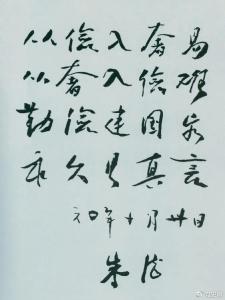 从儉入奢易
从奢入儉难
勤儉建國家
永久是真言
六〇年十月廿日
朱德